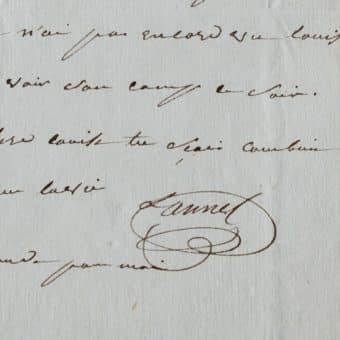 n'ai pas encore vu louis
voir son camp ce soir.
louise tu sçais combien
Lannes
pour moi